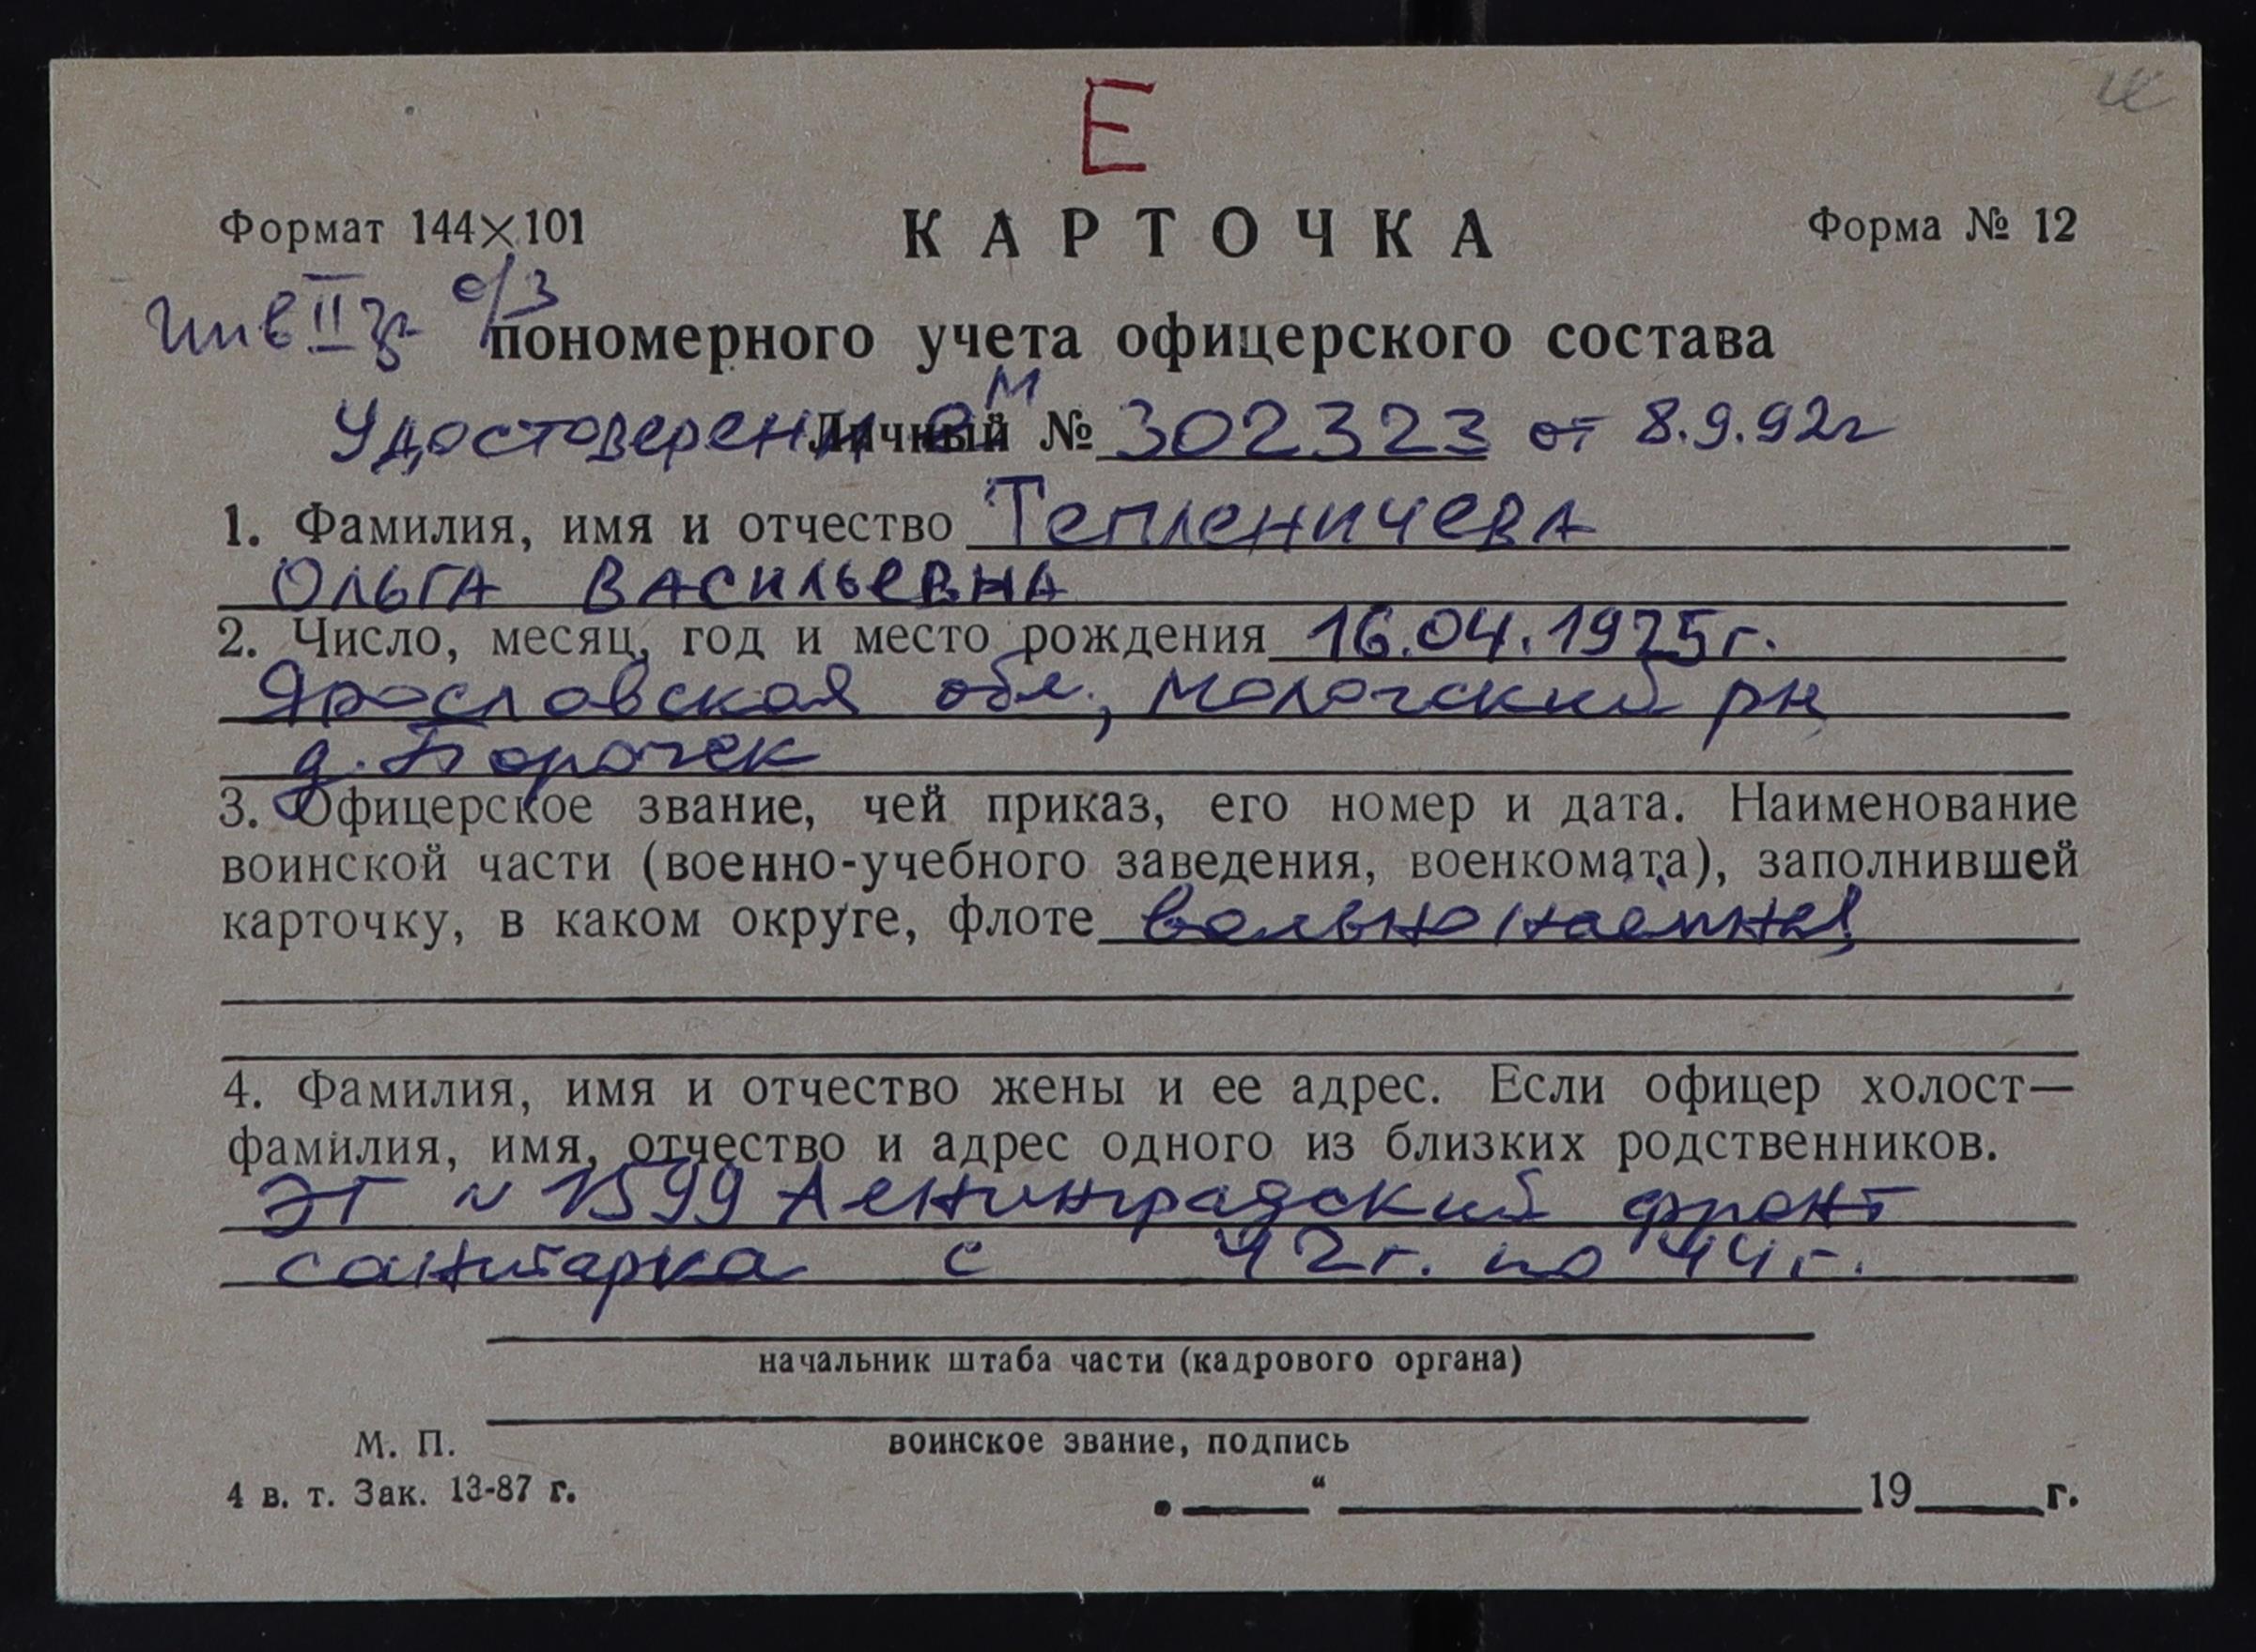 Е
Формат 144×101
КАРТОЧКА
Форма № 12
Инв II гр о/з
пономерного учета офицерского состава
Удостоверение М
Личный № 302323 от 8.9.92г
1. Фамилия, имя и отчество Тепленичева
Ольга Васильевна
2. Число, месяц, год и место рождения 16.04.1925г.
Ярославская обл., Мологский рн
д. Борочек
3. Офицерское звание, чей приказ, его номер и дата. Наименование
воинской части (военно-учебного заведения, военкомата), заполнившей
карточку, в каком округе, флоте вольнонаёмный
4. Фамилия, имя и отчество жены и ее адрес. Если офицер холост—
фамилия, имя, отчество и адрес одного из близких родственников.
ЭГ № 1599 Ленинградский фронт
санитарка с 42г. по 44г.
начальник штаба части (кадрового органа)
М. П.
воинское звание, подпись
4 в. т. Зак. 13-87 г.
„ “ 19 г.